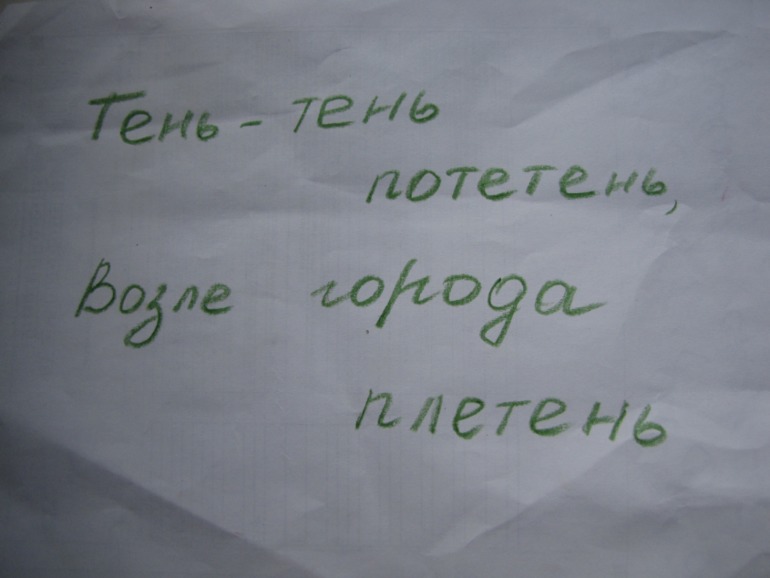 Тень - тень
потетень,
Возле города
плетень